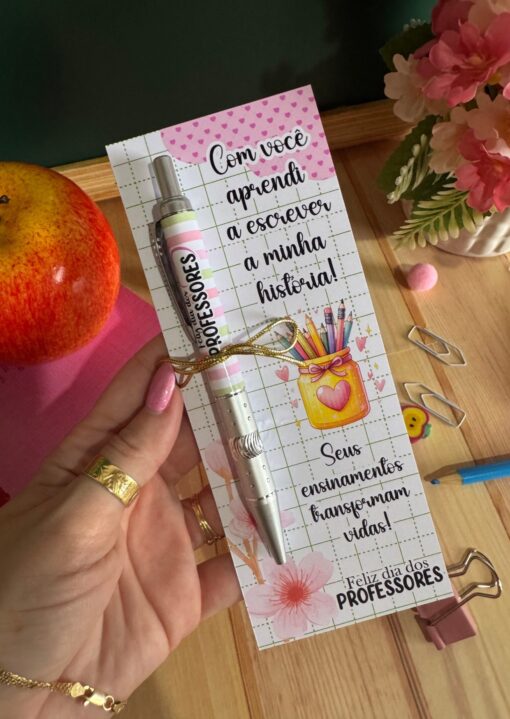 Com você
aprendi
a escrever
a minha
história!
Seus
ensinamentos
transformam
vidas!
Feliz dia dos
PROFESSORES
Feliz dia dos
PROFESSORES